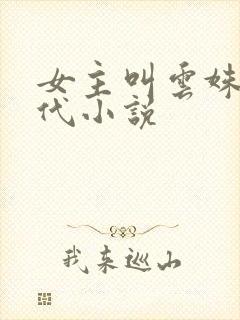 女主叫雲妹
代小説
我來巡山